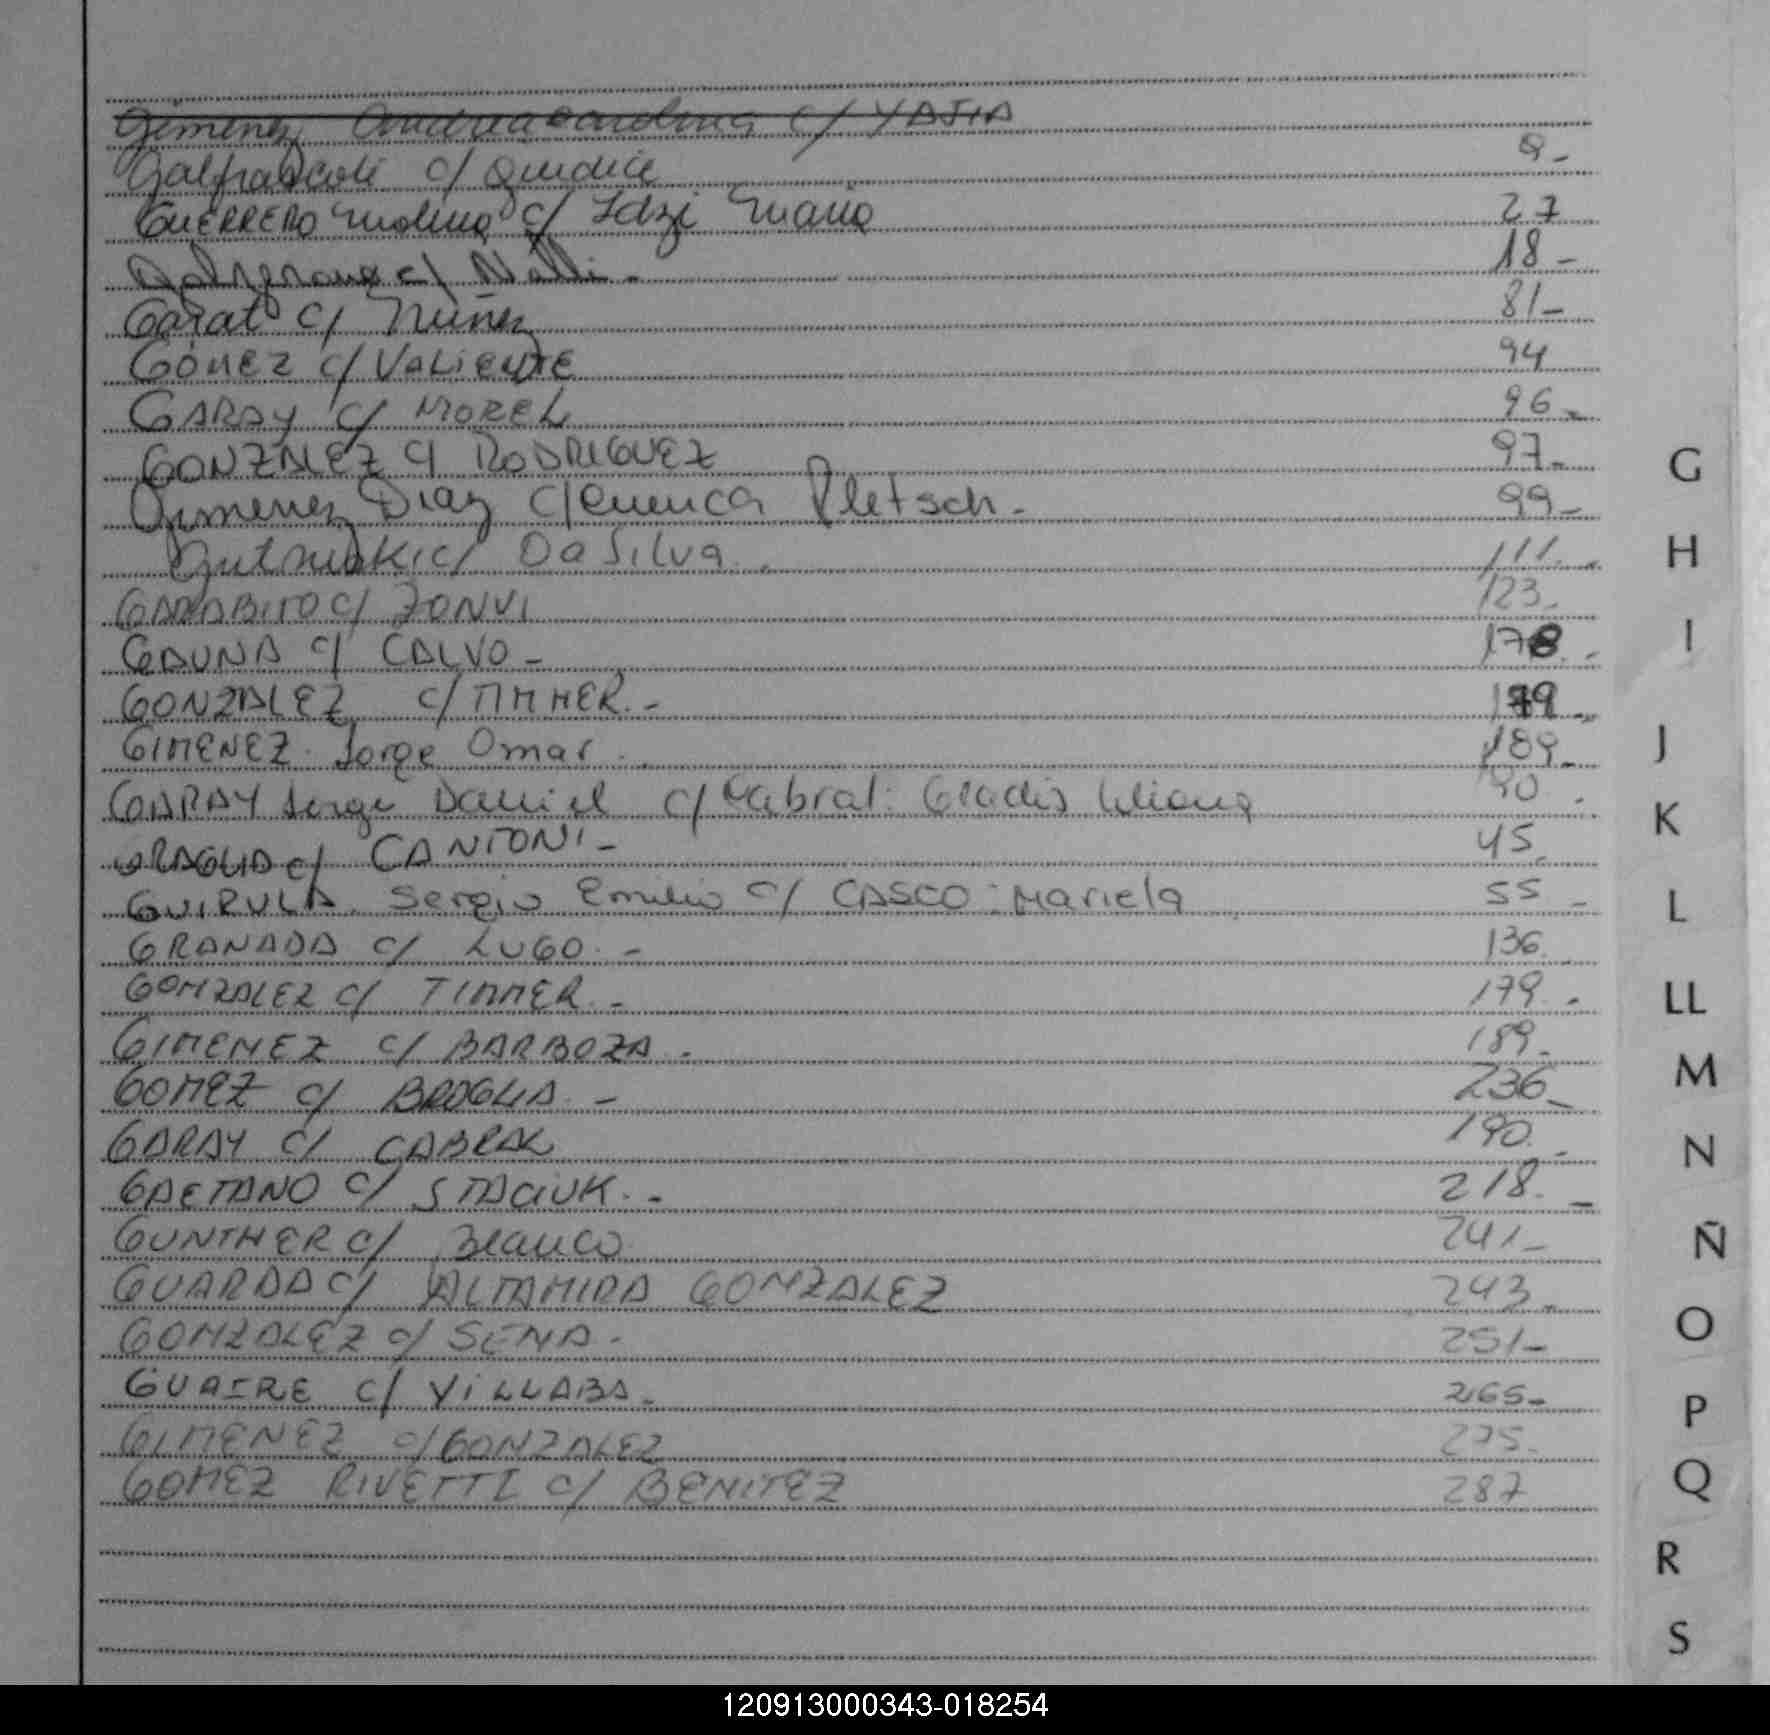 Gimenez Andrea Carolina c/ YAJIA
Galfrascoli c/ Giudice 9-
GUERRERO Molina c/ Idzi Maria 27
c/ 18-
Garat c/ Núñez 81-
GOMEZ c/ VALIENTE 94
GARAY c/ MOREL 96-
GONZALEZ c/ RODRIGUEZ 97-
Gimenez Diaz c/ Pletsch.- 99-
c/ Da Silva 111.-
GARABITO c/ ZONVI 123.
GAUNA c/ CALVO- 178.-
GONZALEZ c/ TIMMER.- 179.-
GIMENEZ. Jorge Omar. 189-
GARAY Jorge Daniel c/ Cabral: Gladis Liliana 190.
GRAGLIA c/ CANTONI- 45.
GUIRULA. Sergio Emilio c/ CASCO: Mariela 55-
GRANADA c/ LUGO.- 136.
GONZALEZ c/ TIMMER.- 179.-
GIMENEZ c/ BARBOZA. 189-
GOMEZ c/ BROGLIA.- 236-
GARAY c/ CABRAL 190.
GAETANO c/ STACIUK.- 218.-
GUNTHER c/ Blanco. 241-
GUARDA c/ ALTAMIRA GONZALEZ 243.
GONZALEZ c/ SENA. 251-
GUAIRE c/ VILLABA. 265-
GIMENEZ c/ GONZALEZ 275.
GOMEZ RIVETTI c/ BENITEZ 287
G
H
I
J
K
L
LL
M
N
Ñ
O
P
Q
R
S
120913000343-018254